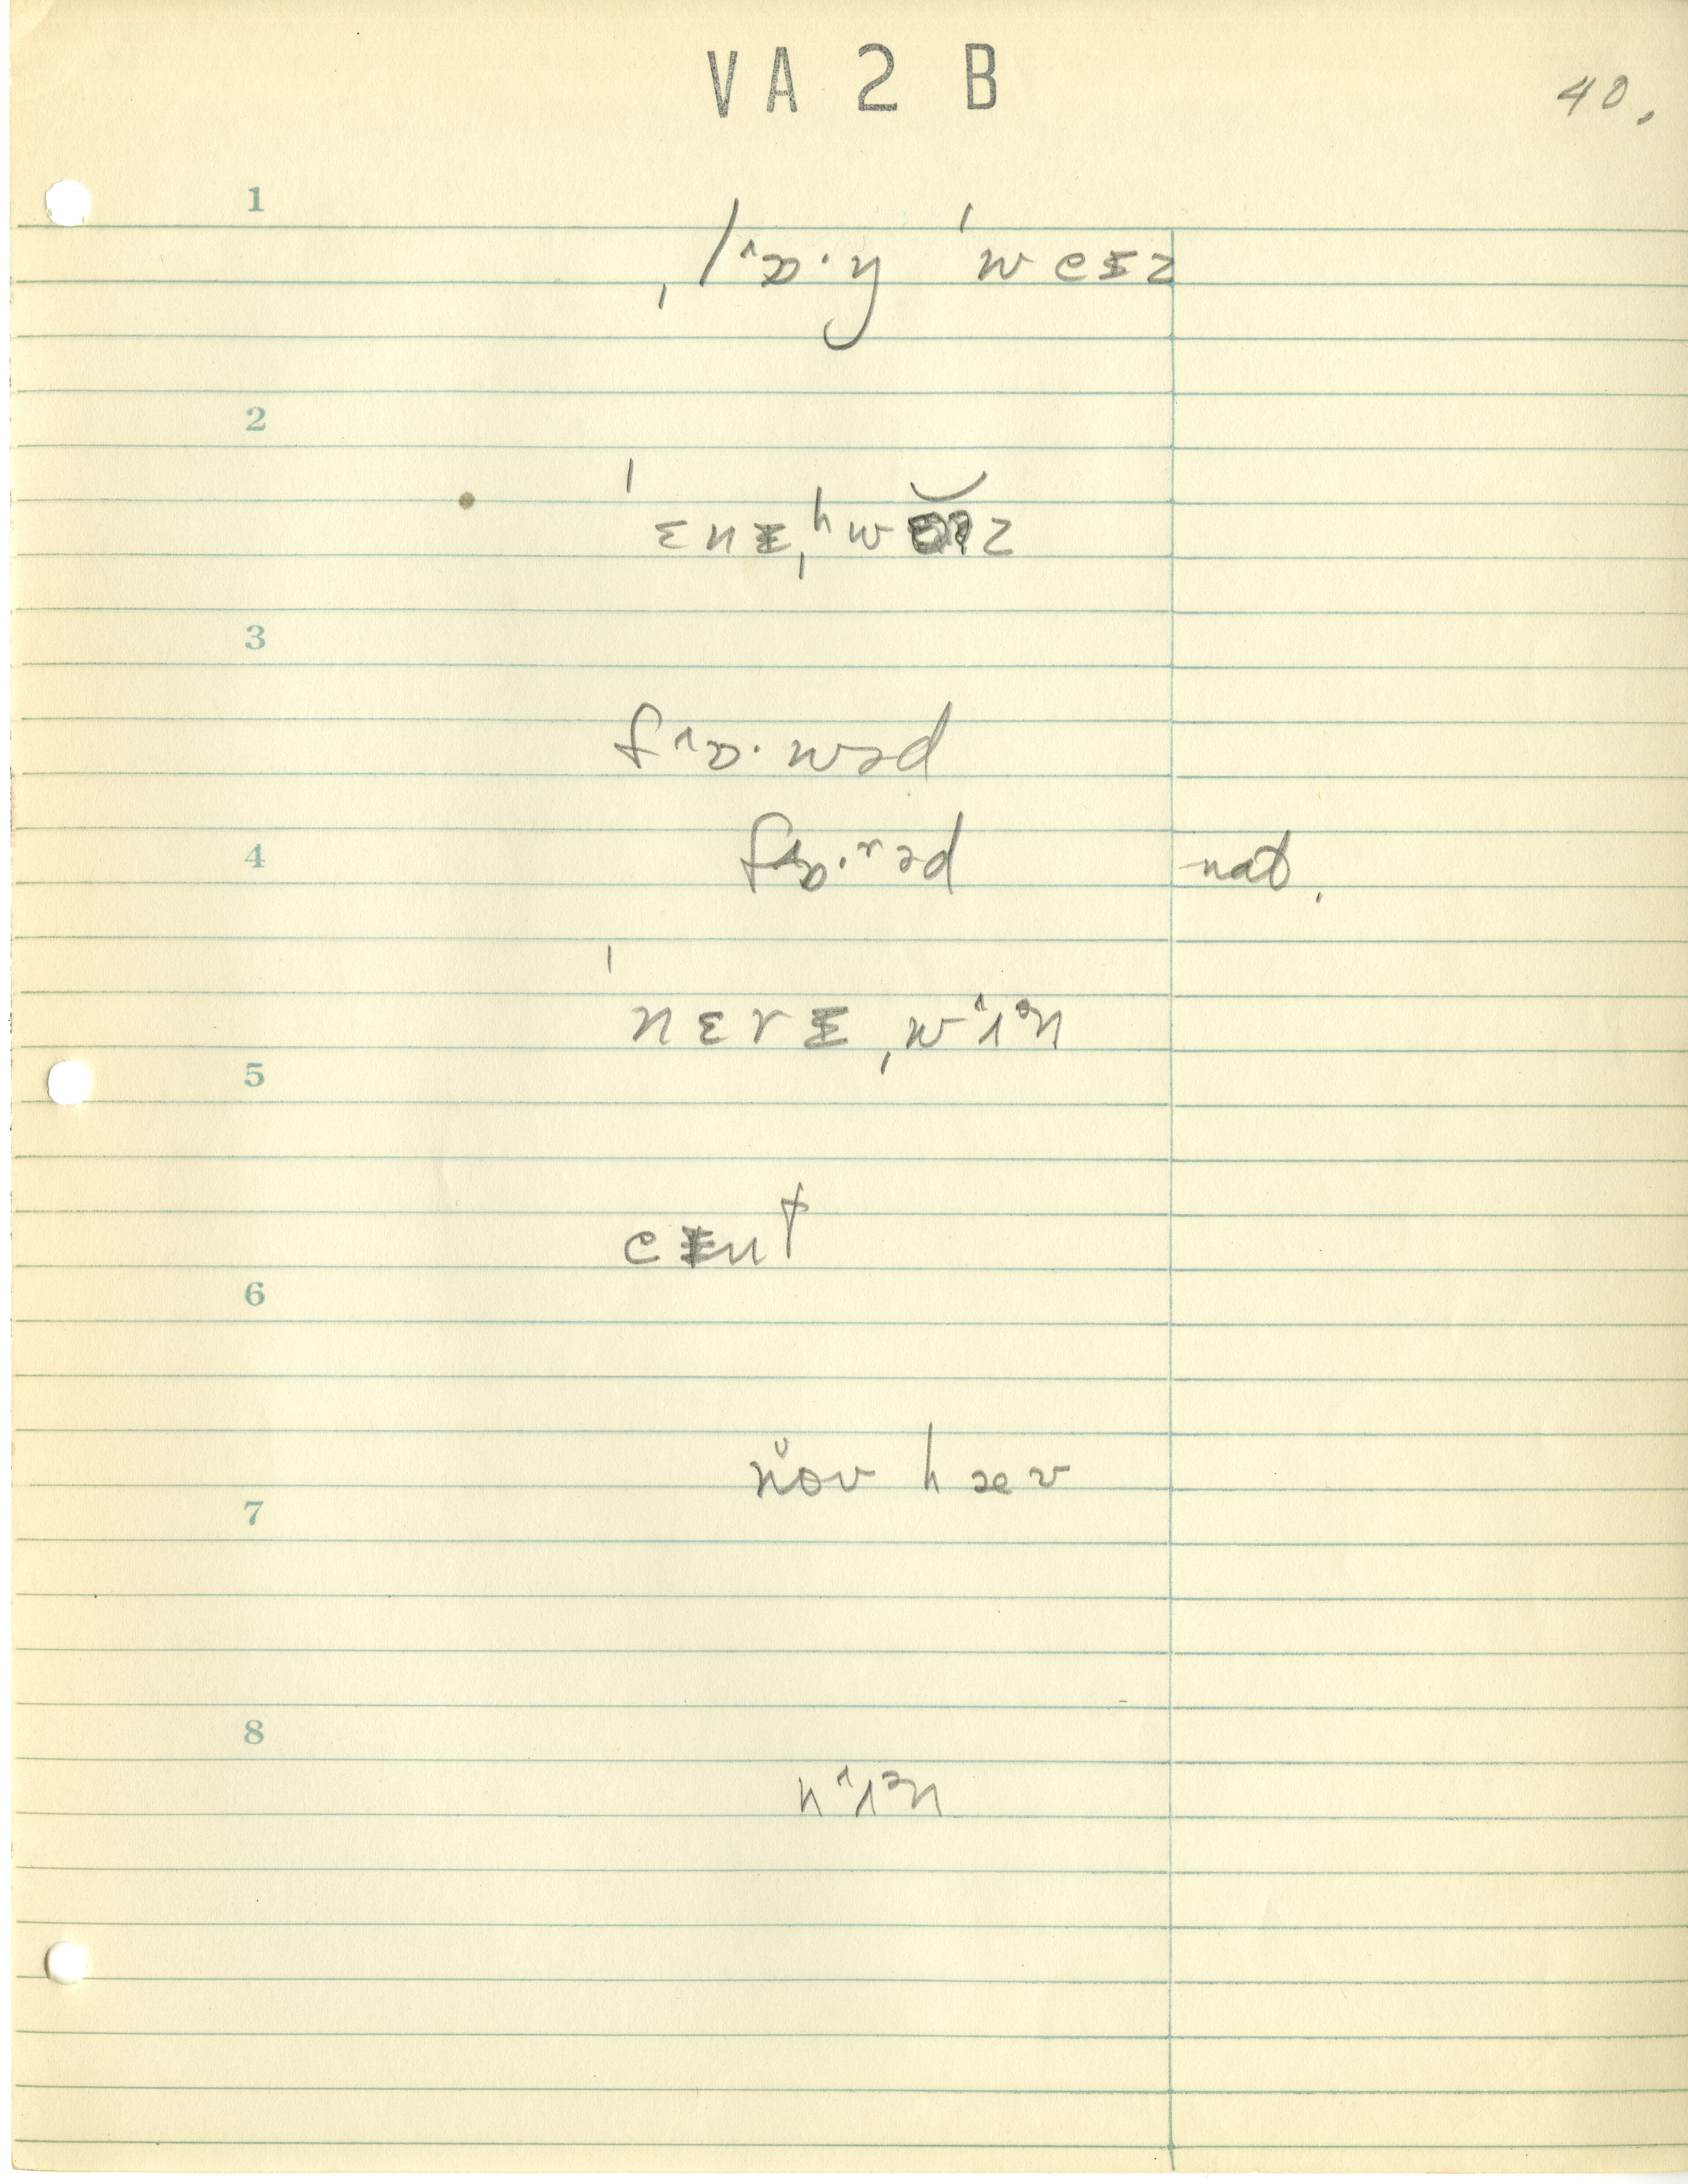 VA 2 B
40.
1
ˌlˆɒ·ŋ ˈweɪz
2
ˈɛnɪˌʰwɛəz
3
fˆɒ·wəd
4
fˆɒ·ʳəd nat.
ˈnɛrɪˌwˆɪᵊn
5
eɪnt
6
nŏʊ hæv
7
8
nˆɪᵊn